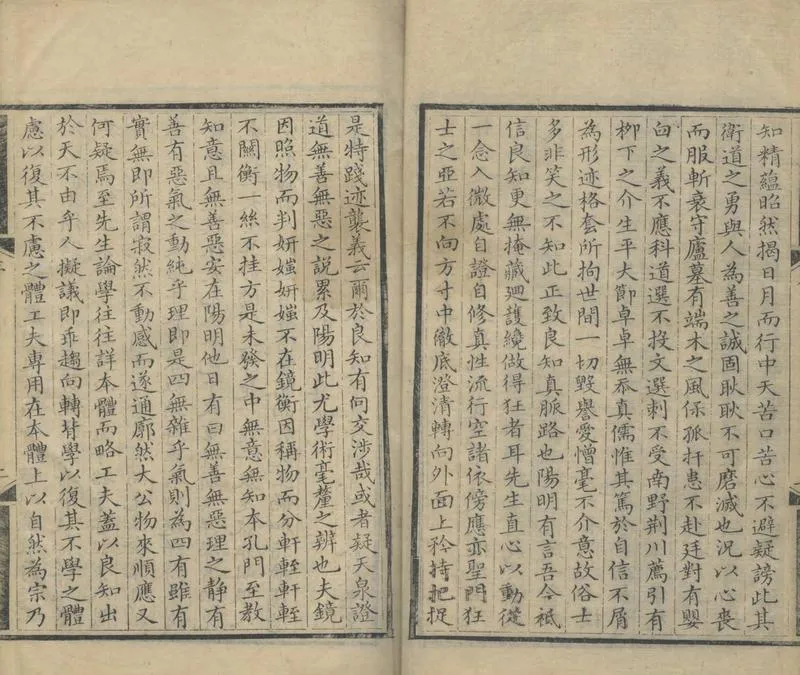 知精蘊昭然揭日月而行中天苦口苦心不避疑謗此其
衛道之勇與人為善之誠固耿耿不可磨滅也況以心喪
而服斬衰守廬墓有端木之風保孤扞患不赴廷對有嬰
臼之義不應科道選不投文選刺不受南野荆川薦引有
栁下之介生平大節卓卓無忝真儒惟其篤於自信不屑
為形迹格套所拘世間一切毀譽愛憎毫不介意故俗士
多非笑之不知此正致良知真脈路也陽明有言吾今祗
信良知更無掩藏廻護纔做得狂者耳先生直心以動從
一念入微處自證自修真性流行空諸依傍應亦聖門狂
士之亞若不向方寸中徹底澄清轉向外面上矜持把捉
是特踐迹襲義云爾於良知有何交涉哉或者疑天泉證
道無善無惡之說累及陽明此尤學術毫釐之辨也夫鏡
因照物而判妍媸妍媸不在鏡衡因稱物而分軒輊軒輊
不關衡一絲不挂方是未發之中無意無知本孔門至教
知意且無善惡安在陽明他日有曰無善無惡理之靜有
善有惡氣之動純乎理即是四無雜乎氣則為四有雖有
實無即所謂寂然不動感而遂通廓然大公物來順應又
何疑焉至先生論學往往詳本體而略工夫蓋以良知出
於天不由乎人擬議即乖趨向轉背學以復其不學之體
慮以復其不慮之體工夫專用在本體上以自然為宗乃